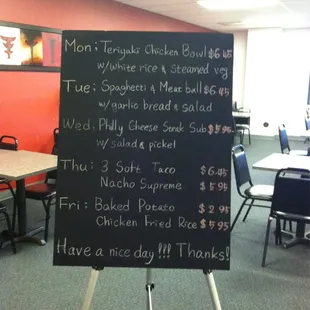 Mon: Teriyaki Chicken Bowl $6.45
w/white rice & steamed veg
Tue: Spaghetti & Meat ball $6.45
w/ garlic bread & salad
Wed: Philly Cheese Steak Sub $5.95
w/salad & pickel
Thu: 3 Soft Taco $6.45
Nacho Supreme $5.95
Fri: Baked Potato $2.95
Chicken Fried Rice $5.95
Have a nice day!!! Thanks!